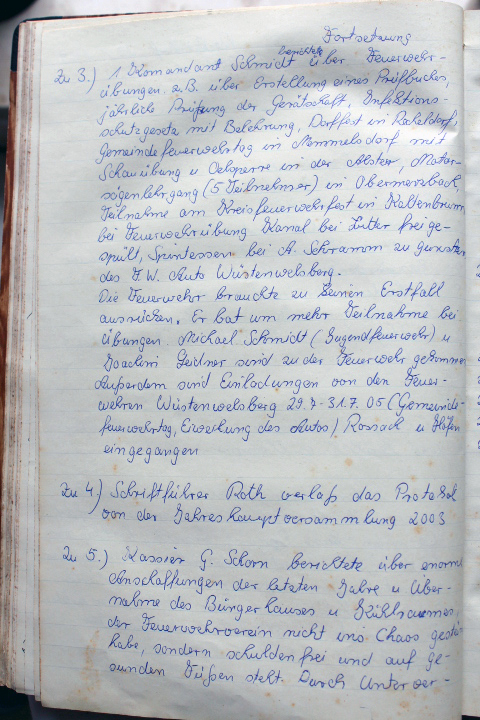 Fortsetzung
Zu 3.) 1. Komandant Schmidt berichtete über Feuerwehr-
übungen z.B. über Erstellung eines Prüfbuches,
jährliche Prüfung der Gerätschaft, Infektions-
schutzgesetz mit Belehrung, Dorffest in Reckeldorf,
Gemeindefeuerwehrtag in Memmelsdorf mit
Schauübung u Oelsperre in der Alster, Motor-
sägenlehrgang (5 Teilnehmer) in Obermerzbach,
Teilnahme am Kreisfeuerwehrfest in Kaltenbrunn,
bei Feuerwehrübung Kanal bei Lutter freige-
spült, Spintessen bei A. Schramm zu gunsten
des F.W. Auto Wüstenwelsberg.
Die Feuerwehr brauchte zu keinen Ernstfall
ausrücken. Er bat um mehr Teilnahme bei
Übungen. Michael Schmidt (Jugendfeuerwehr) u
Joachim Geidner sind zu der Feuerwehr gekommen
Außerdem sind Einlodungen von den Feuer-
wehren Wüstenwelsberg 29.7-31.7.05 (Gemeinde-
feuerwehrtag, Einweihung des Autos), Rossach u Höfen
eingegangen
Zu 4.) Schriftführer Roth verlaß das Protokol
von der Jahreshauptversammlung 2003
Zu 5.) Kassier G. Schorn berichtete über enorme
Anschaffungen der letzten Jahre u Über-
nahme des Bürgerhauses u Kühlraumes,
der Feuerwehrverein nicht ins Chaos gestürzt
habe, sondern schuldenfrei und auf ge-
sunden Füßen steht. Durch Unterver-